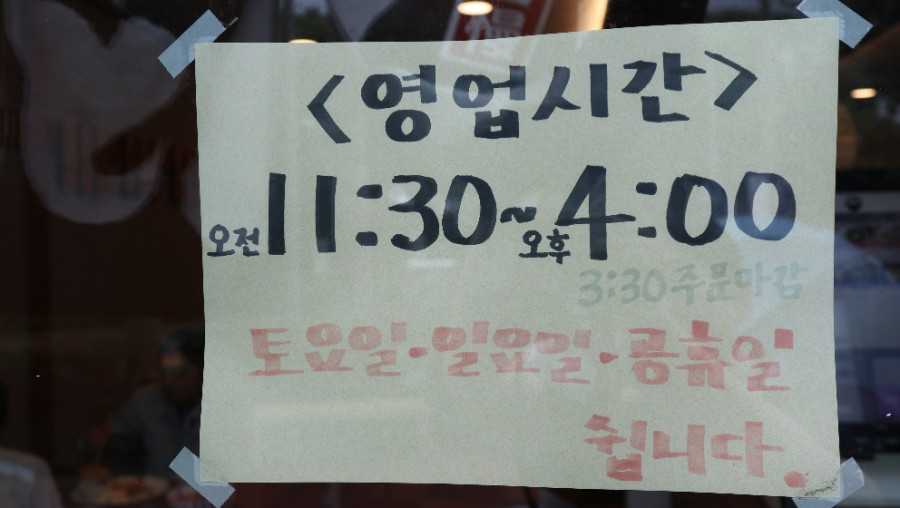 <영업시간>
오전 11:30~오후 4:00
3:30 주문마감
토요일·일요일·공휴일
쉽니다.